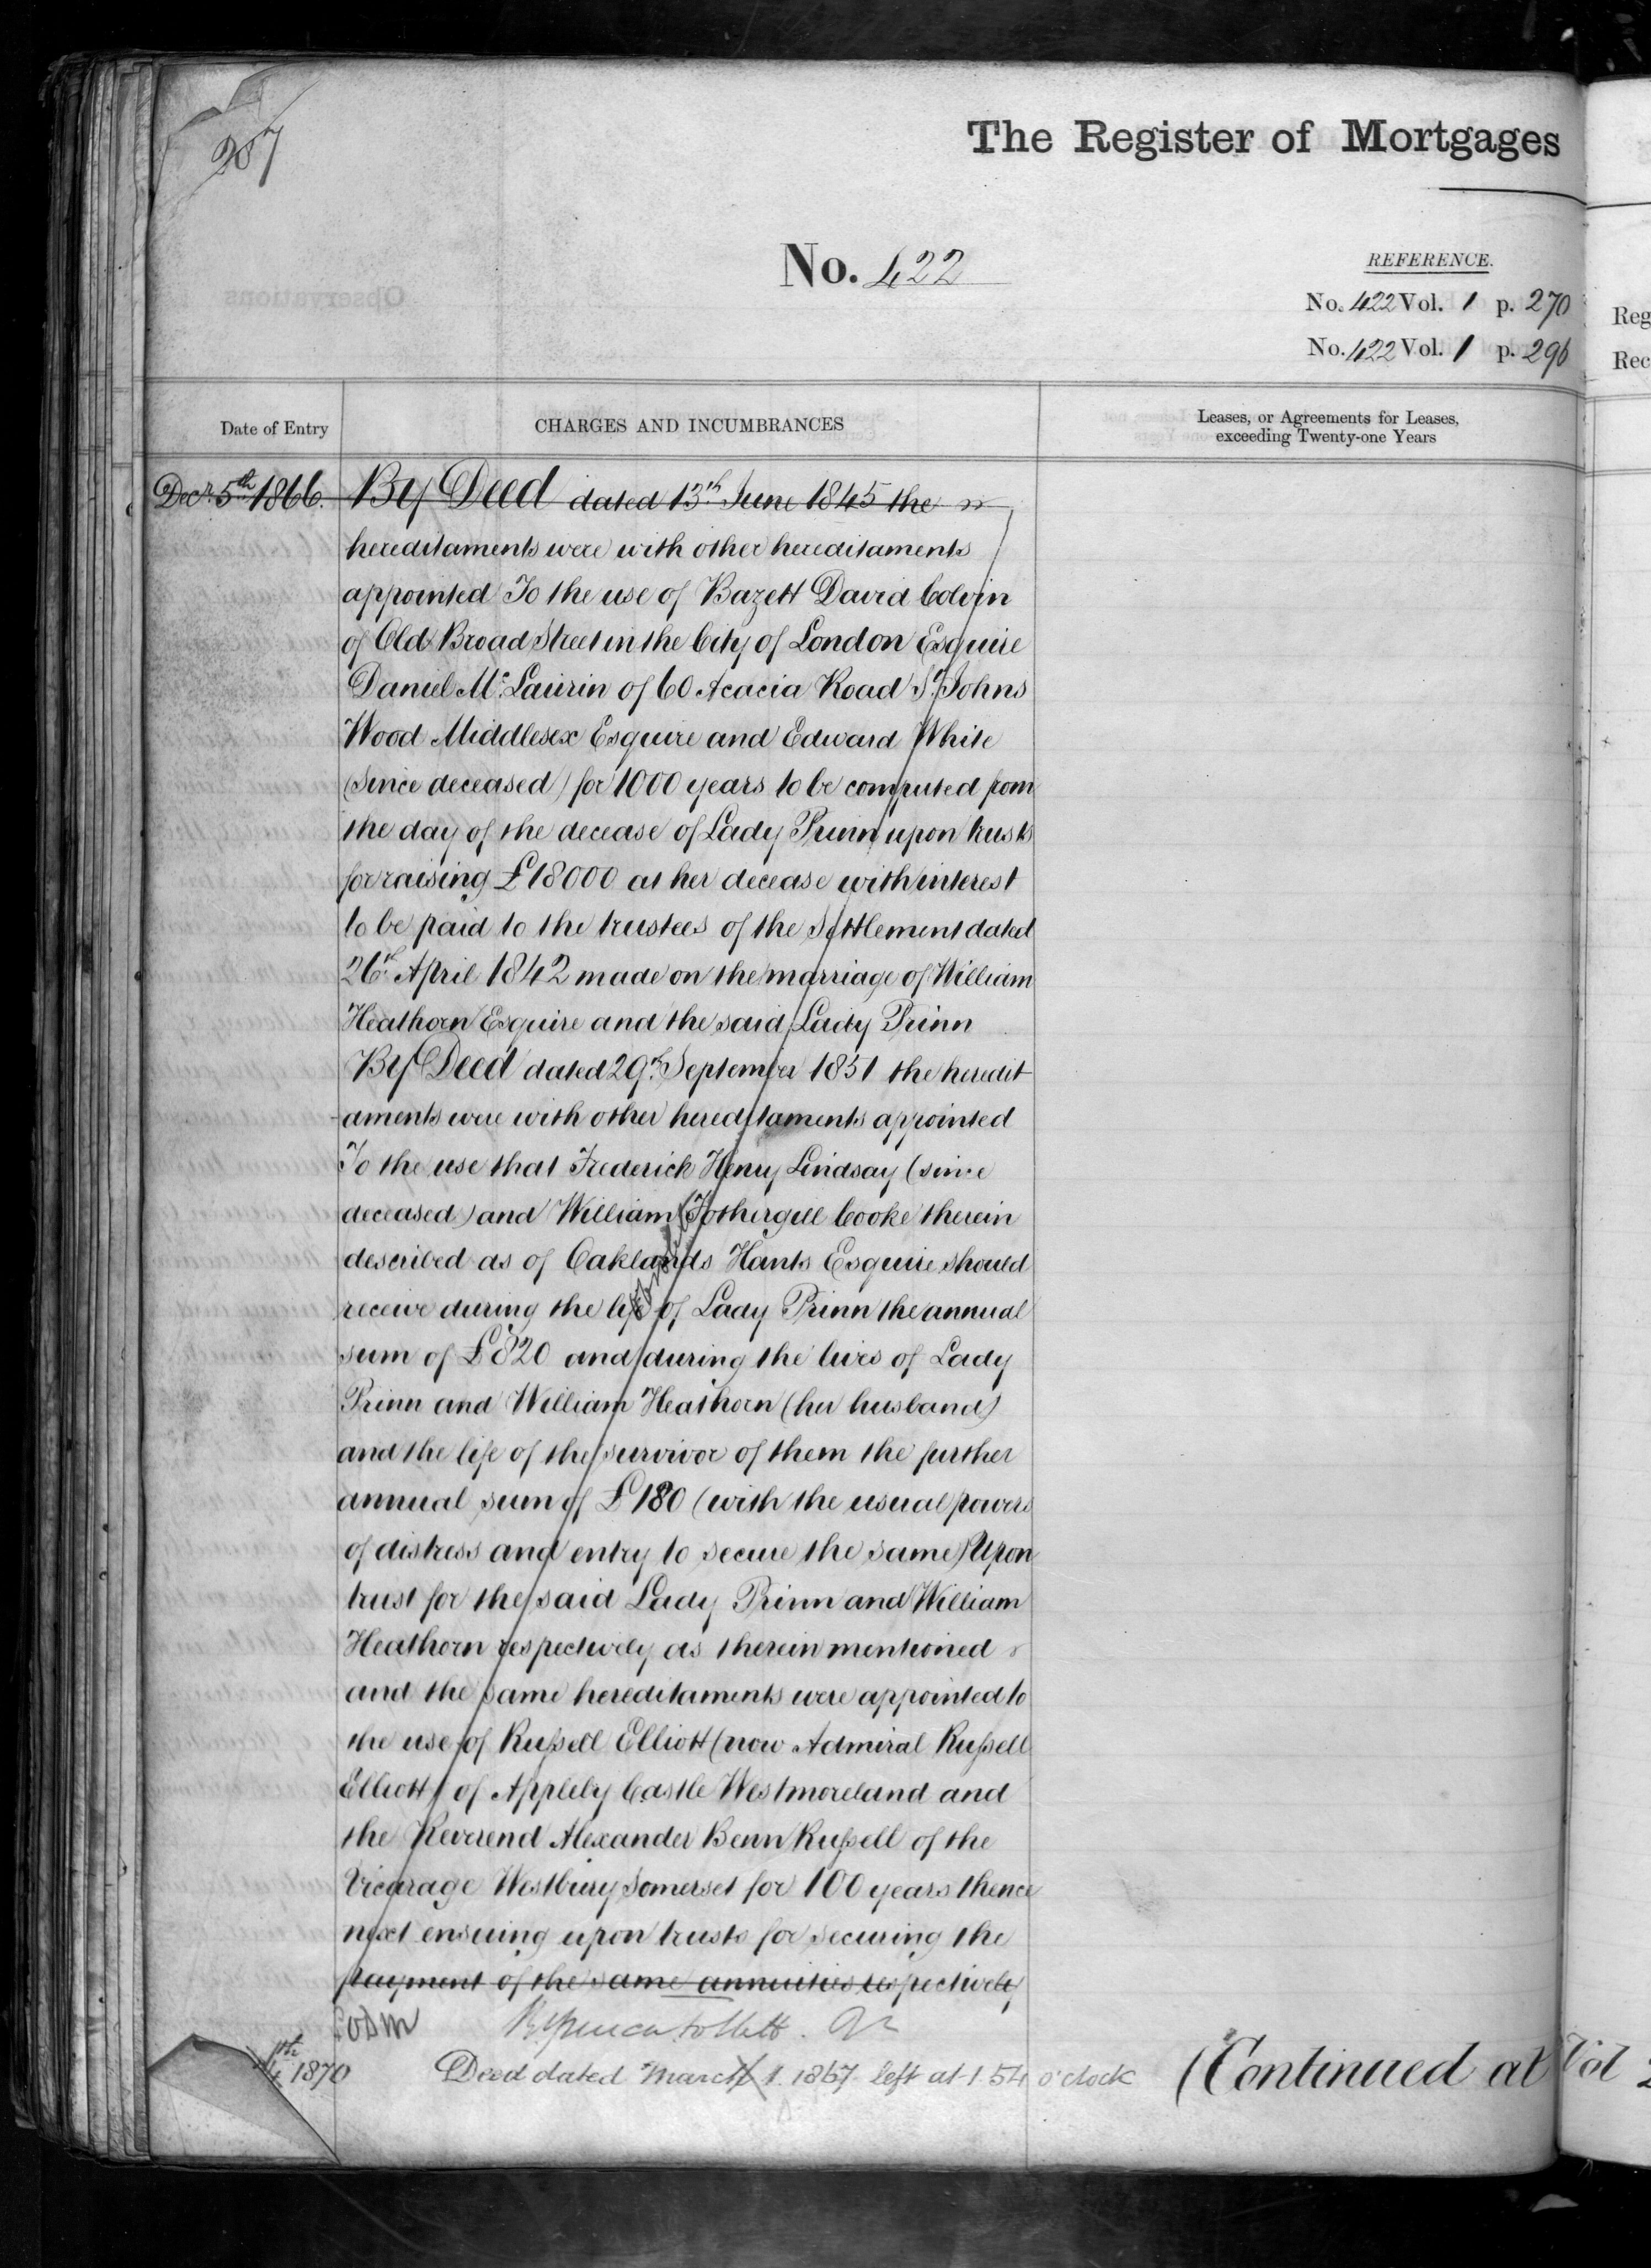 207
The Register of Mortgages
No. 422
REFERENCE.
No. 422 Vol. 1 p. 270
No. 422 Vol. 1 p. 296
Reg
Rec
Date of Entry
CHARGES AND INCUMBRANCES
Leases, or Agreements for Leases,
exceeding Twenty-one Years
Decr. 5th 1866. By Deed dated 13th June 1845 the
hereditaments were with other hereditaments
appointed To the use of Bazett David Colvin
of Old Broad Street in the City of London Esquire
Daniel Mc. Laurin of 60 Acacia Road St. Johns
Wood Middlesex Esquire and Edward White
(since deceased) for 1000 years to be computed from
the day of the decease of Lady Prinn upon trusts
for raising £18000 at her decease with interest
to be paid to the trustees of the Settlement dated
26th April 1842 made on the marriage of William
Heathorn Esquire and the said Lady Prinn
By Deed dated 29th September 1851 the heredit
-aments were with other hereditaments appointed
To the use that Frederick Henry Lindsay (since
deceased) and William Fothergill Cooke therein
described as of Oaklands Hants Esquire should
receive during the life of Lady Prinn the annual
sum of £820 and during the lives of Lady
Prinn and William Heathorn (her husband)
and the life of the survivor of them the further
annual sum of £180 (with the usual powers
of distress and entry to secure the same) Upon
trust for the said Lady Prinn and William
Heathorn respectively as therein mentioned
and the same hereditaments were appointed to
the use of Russell Elliott (now Admiral Russell
Elliott) of Appleby Castle Westmoreland and
the Reverend Alexander Benn Russell of the
Vicarage Westbury Somerset for 100 years thence
next ensuing upon trusts for securing the
payment of the same annuities respectively
1870 Deed dated March 1. 1867 left at 1.54 o'clock
(Continued at Vol